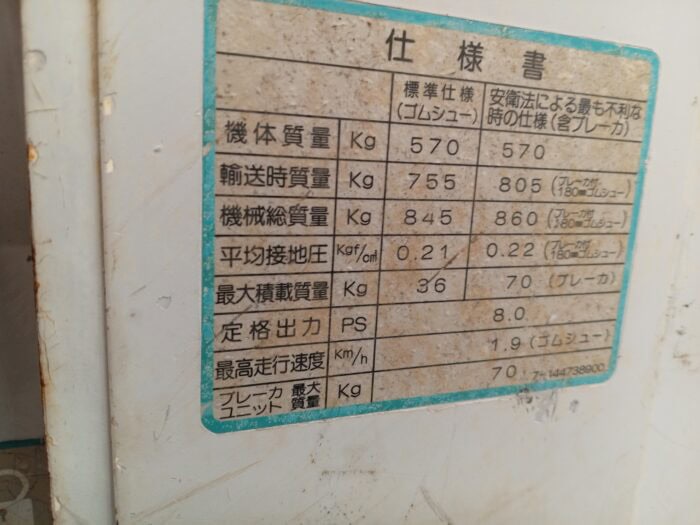 仕様書
標準仕様 安衛法による最も不利な
(ゴムシュー) 時の仕様(含ブレーカ)
機体質量 Kg 570 570
輸送時質量 Kg 755 805 (ブレーカ付 180mmゴムシュー)
機械総質量 Kg 845 860 (ブレーカ付 180mmゴムシュー)
平均接地圧 Kgf/cm² 0.21 0.22 (ブレーカ付 180mmゴムシュー)
最大積載質量 Kg 36 70 (ブレーカ)
定格出力 PS 8.0
最高走行速度 Km/h 1.9 (ゴムシュー)
ブレーカユニット 最大質量 Kg 70
7-144738900